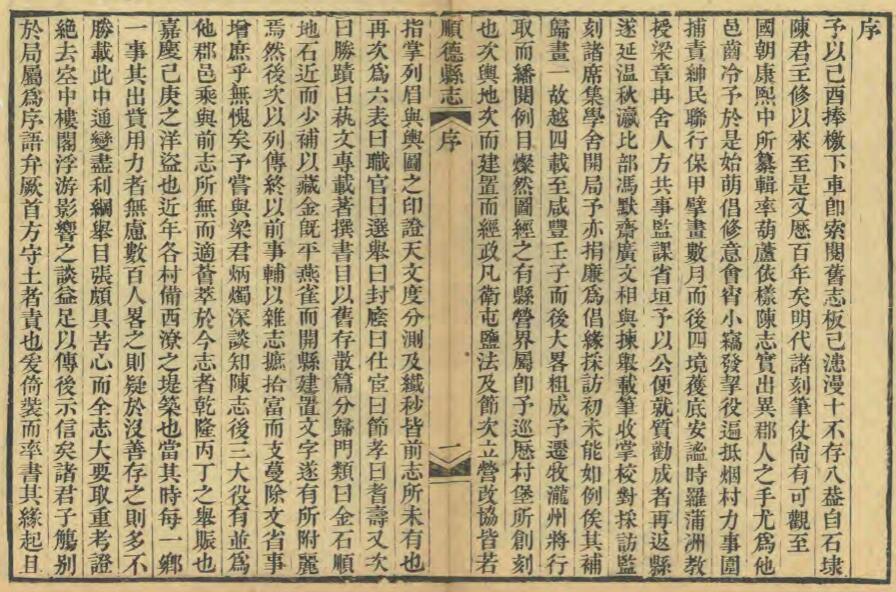 序
予以己酉捧檄下車卽索閱舊志板已漶漫十不存八葢自石埭
陳君王修以來至是又歷百年矣明代諸刻筆仗尙有可觀至
國朝康熙中所纂輯率葫蘆依樣陳志實出異郡人之手尤爲他
邑齒冷予於是始萌倡修意會宵小竊發掔役逼抵烟村力事圍
捕責紳民聯行保甲擘畫數月而後四境獲底安謐時羅蒲洲教
授梁章冉舍人方共事監課省垣予以公便就質勸成者再返縣
遂延温秋瀛比部馮默齋廣文相與捒舉載筆收掌校對採訪監
刻諸席集學舍開局予亦捐廉爲倡緣採訪初未能如例俟其補
歸畫一故越四載至咸豐壬子而後大畧粗成予遷牧瀧州將行
取而繙閱例目燦然圖經之有縣營界屬卽予巡歷村堡所創刻
也次輿地次而建置而經政凡衛屯鹽法及節次立營改協皆若
順德縣志
序
一
指掌列眉與輿圖之印證天文度分測及纖秒皆前志所未有也
再次爲六表曰職官曰選舉曰封廕曰仕宦曰節孝曰耆壽又次
曰勝蹟曰秇文專載著撰書目以舊存散篇分歸門類曰金石順
地石近而少補以藏金旣平燕雀而開縣建置文字遂有所附麗
焉然後次以列傳終以前事輔以雜志摭拾富而支蔓除文省事
增庶乎無愧矣予嘗與梁君炳燭深談知陳志後三大役有並爲
他郡邑乘與前志所無而適薈萃於今志者乾隆丙丁之舉賑也
嘉慶己庚之洋盜也近年各村備西潦之堤築也當其時每一鄉
一事其出貲用力者無慮數百人畧之則疑於沒善存之則多不
勝載此中通變盡利綱舉目張頗具苦心而全志大要取重考證
絶去空中樓閣浮游影響之談益足以傳後示信矣諸君子觴别
於局屬爲序語弁厥首方守土者責也爰倚裝而率書其緣起且